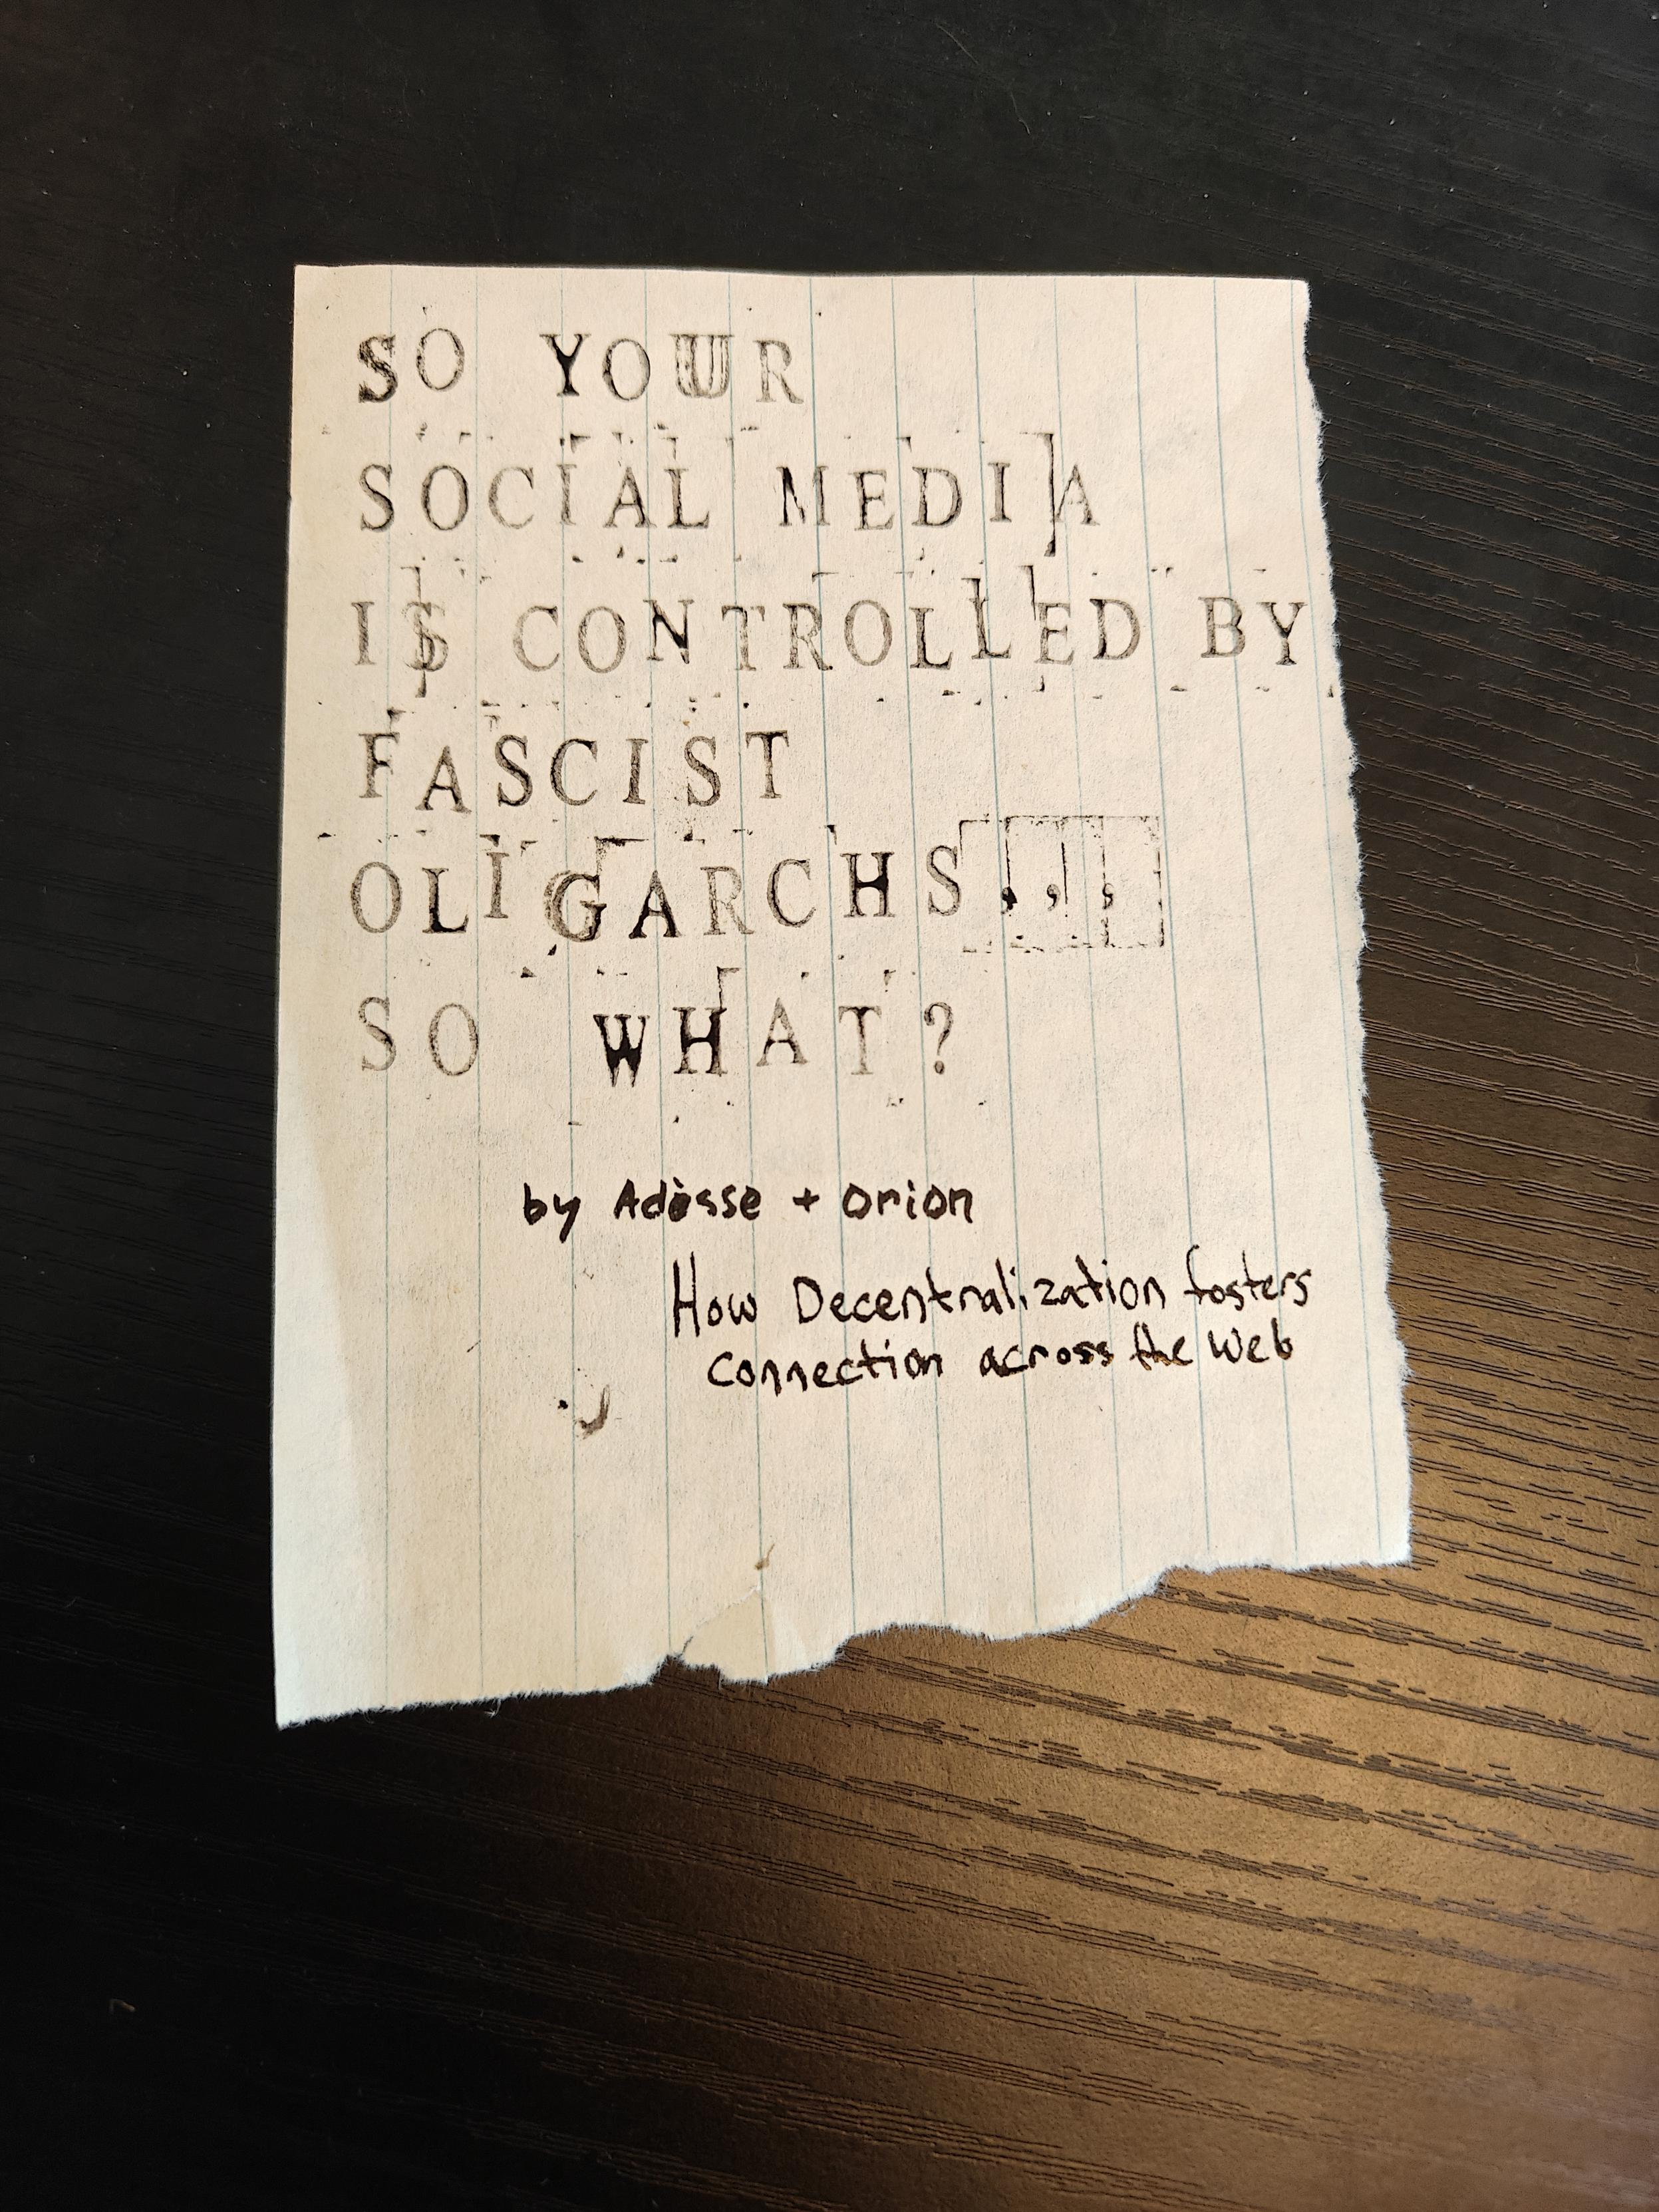 SO YOUR
SOCIAL MEDIA
IS CONTROLLED BY
FASCIST
OLIGARCHS...
SO WHAT?
by Adèsse + Orion
How Decentralization fosters
connection across the Web